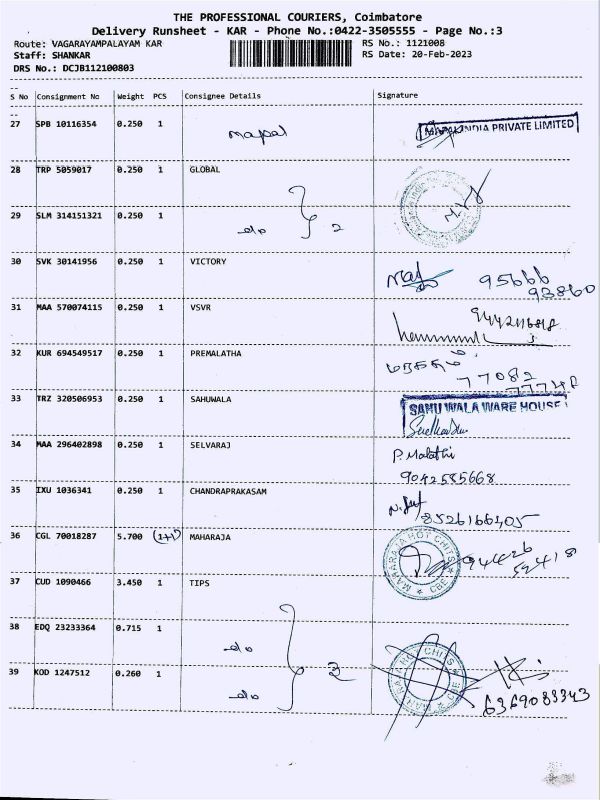 THE PROFESSIONAL COURIERS, Coimbatore
Delivery Runsheet - KAR - Phone No.:0422-3505555 - Page No.:3
Route: VAGARAYAMPALAYAM KAR RS No.: 1121008
Staff: SHANKAR RS Date: 20-Feb-2023
DRS No.: DCJB112100803
S No Consignment No Weight PCS Consignee Details Signature
27 SPB 10116354 0.250 1 Mapal INDIA PRIVATE LIMITED
28 TRP 5059017 0.250 1 GLOBAL
29 SLM 314151321 0.250 1 do } 2
30 SVK 30141956 0.250 1 VICTORY 95666
93860
31 MAA 570074115 0.250 1 VSVR
32 KUR 694549517 0.250 1 PREMALATHA
77082
33 TRZ 320506953 0.250 1 SAHUWALA SAHUWALA WARE HOUSE
34 MAA 296402898 0.250 1 SELVARAJ P. Malathi
9042585668
35 IXU 1036341 0.250 1 CHANDRAPRAKASAM
8526166405
36 CGL 70018287 5.700 (1+1) MAHARAJA MAHARAJA HOT CHITS CBE 94426
52418
37 CUD 1090466 3.450 1 TIPS
38 EDQ 23233364 0.715 1 do
39 KOD 1247512 0.260 1 do } 3 MAHARAJA HOT CHITS CBE
6369083343